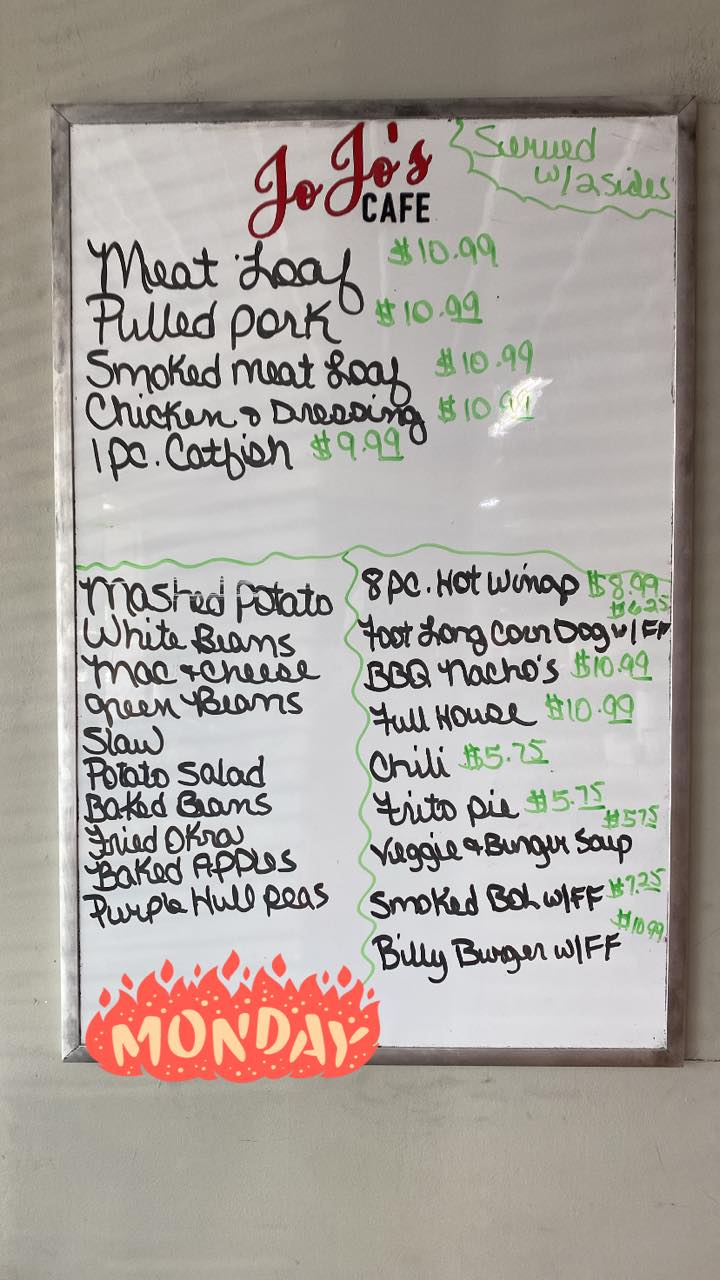 JoJo's
CAFE
Served
w/2 sides
Meat Loaf $10.99
Pulled pork $10.99
Smoked meat Loaf $10.99
Chicken & Dressing $10.99
1 pc. Catfish $9.99
Mashed potato
White Beans
Mac & Cheese
green Beans
Slaw
Potato Salad
Baked Beans
Fried Okra
Baked Apples
Purple Hull peas
8 pc. Hot Wings $8.99
$6.25
Foot Long Corn Dog w/FF
BBQ Nacho's $10.99
Full House $10.99
Chili $5.75
Frito pie $5.75
$5.75
Veggie & Burger Soup
Smoked BOL w/FF $7.25
$10.99
Billy Burger w/FF
MONDAY